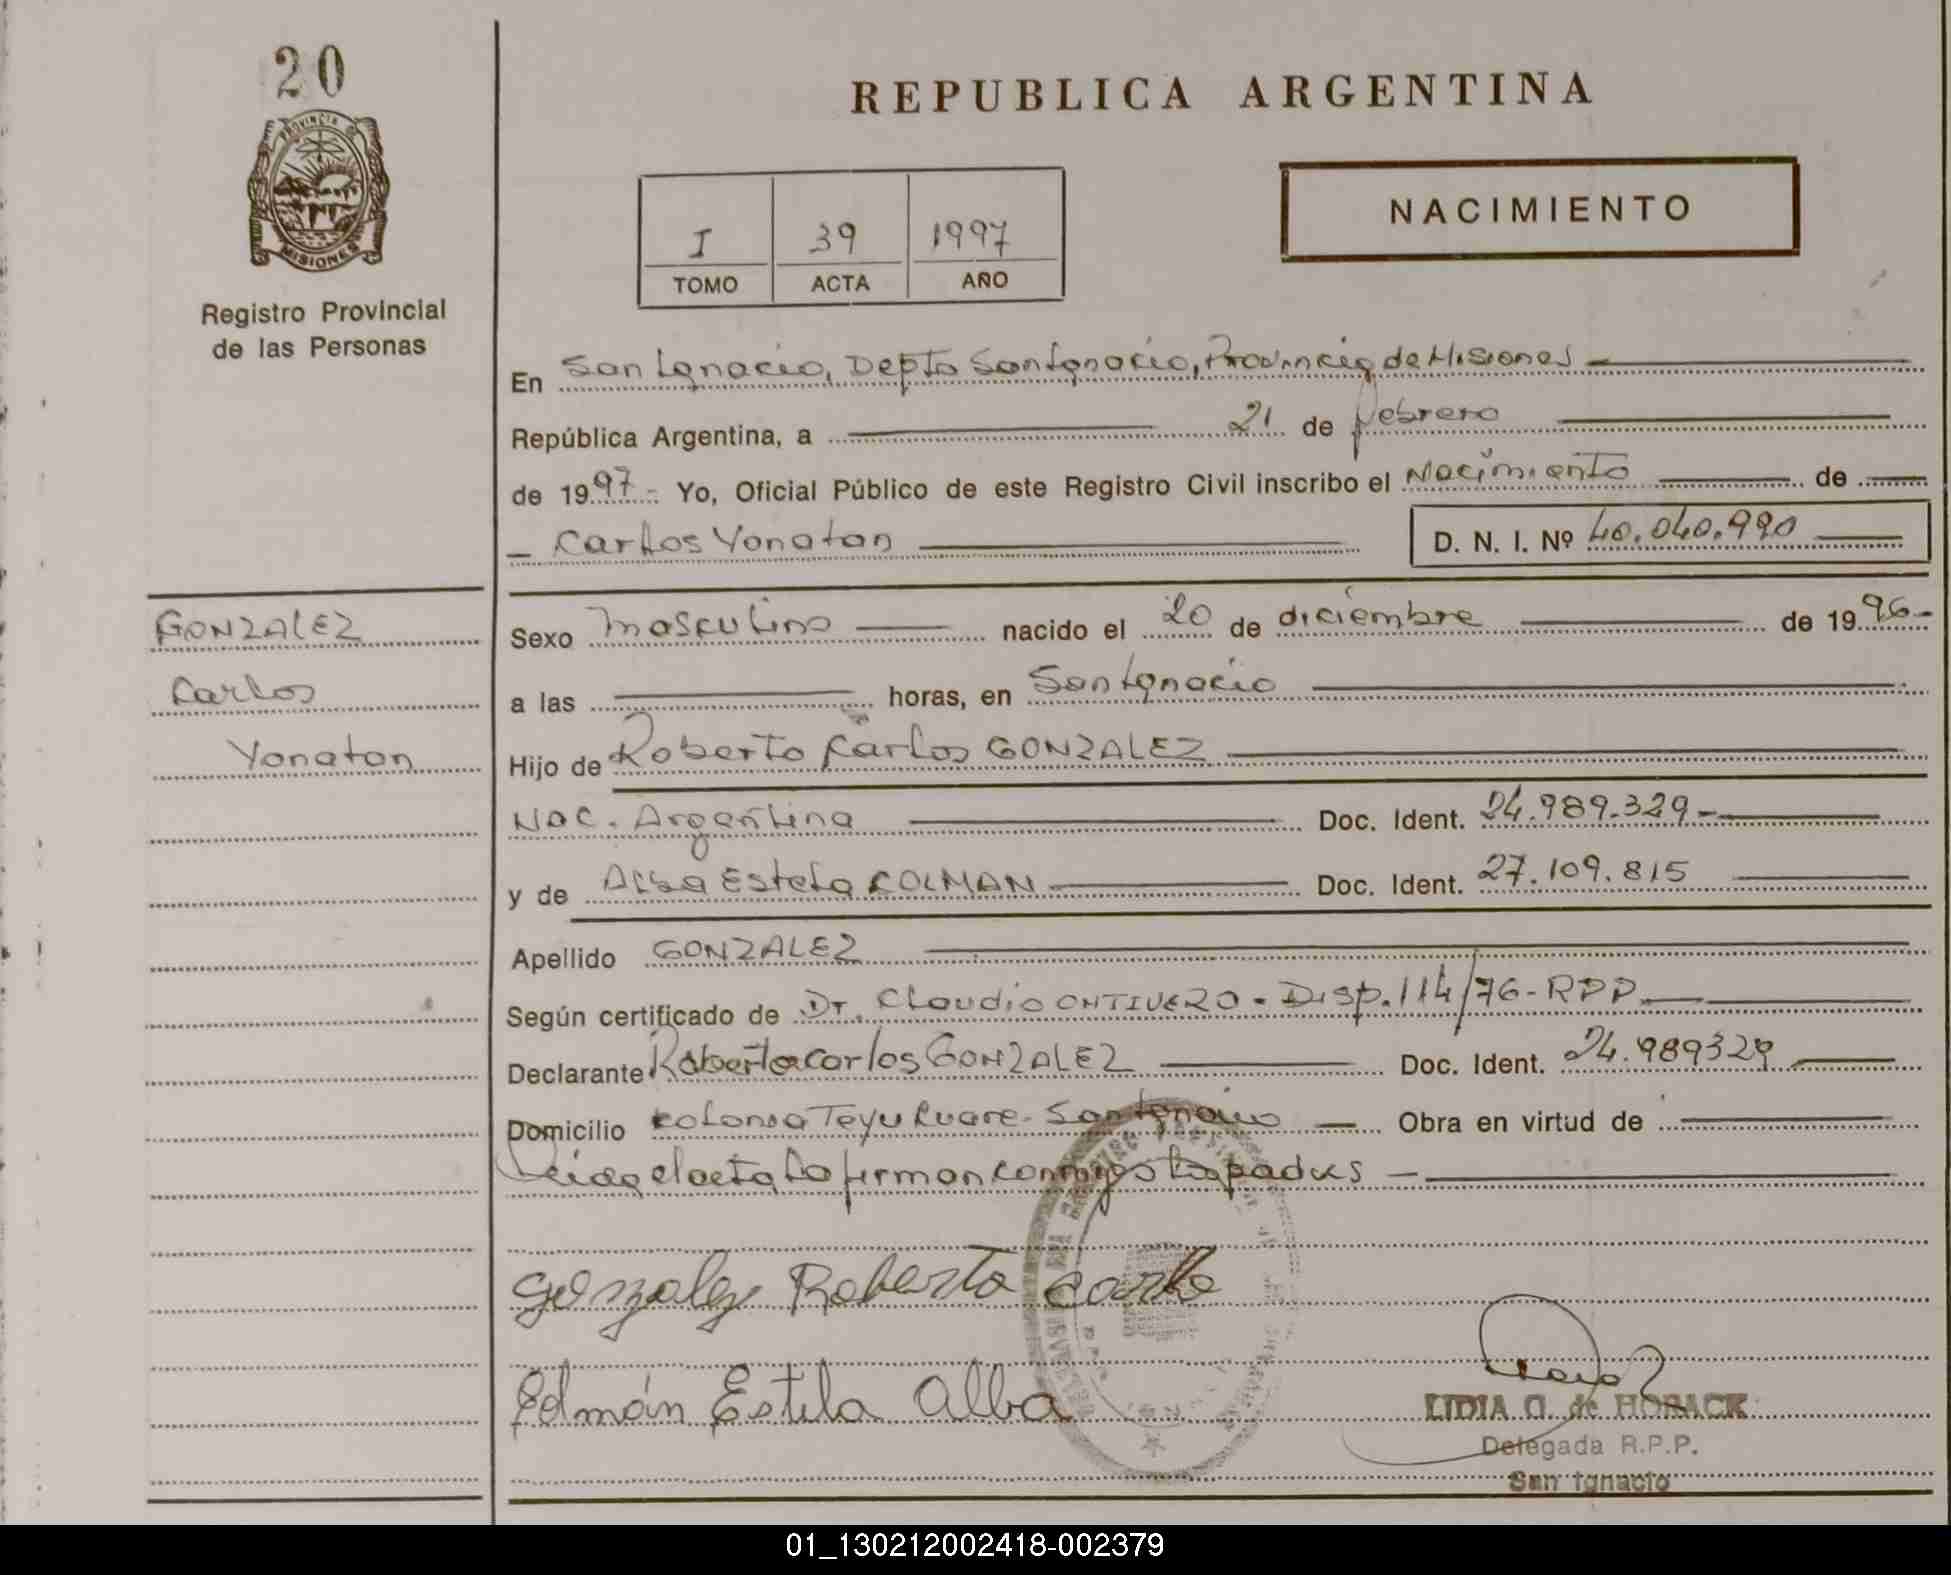 20
PROVINCIA DE
MISIONES
Registro Provincial
de las Personas
REPUBLICA ARGENTINA
I 39 1997
TOMO ACTA AÑO
NACIMIENTO
En San Ignacio, Depto San Ignacio, Provincia de Misiones
República Argentina, a 21 de febrero
de 1997 - Yo, Oficial Público de este Registro Civil inscribo el Nacimiento de
Carlos Yonatan D. N. I. Nº 40.040.990
GONZALEZ
Carlos
Yonatan
Sexo Masculino nacido el 20 de diciembre de 1996-
a las horas, en San Ignacio
Hijo de Roberto Carlos GONZALEZ
Nac. Argentina Doc. Ident. 24.989.329-
y de Alba Estela COLMAN Doc. Ident. 27.109.815
Apellido GONZALEZ
Según certificado de Dr. Claudio ONTIVERO - Disp. 114/76 - RPP
Declarante Roberto Carlos GONZALEZ Doc. Ident. 24.989329
Domicilio Colonia Teyu Cuare - San Ignacio Obra en virtud de
Leida el acta la firman conmigo los padres
Gonzalez Roberto Carlo
Colmán Estela Alba
LIDIA O. de HORACK
Delegada R.P.P.
San Ignacio
01_130212002418-002379